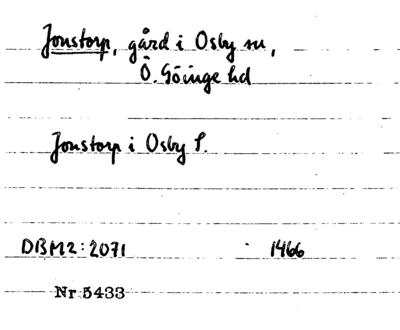 Jonstorp, gård i Osby sn,
Ö. Göinge hd
Jonstorp i Osby S.
DBM2:2071 1466
Nr 5433